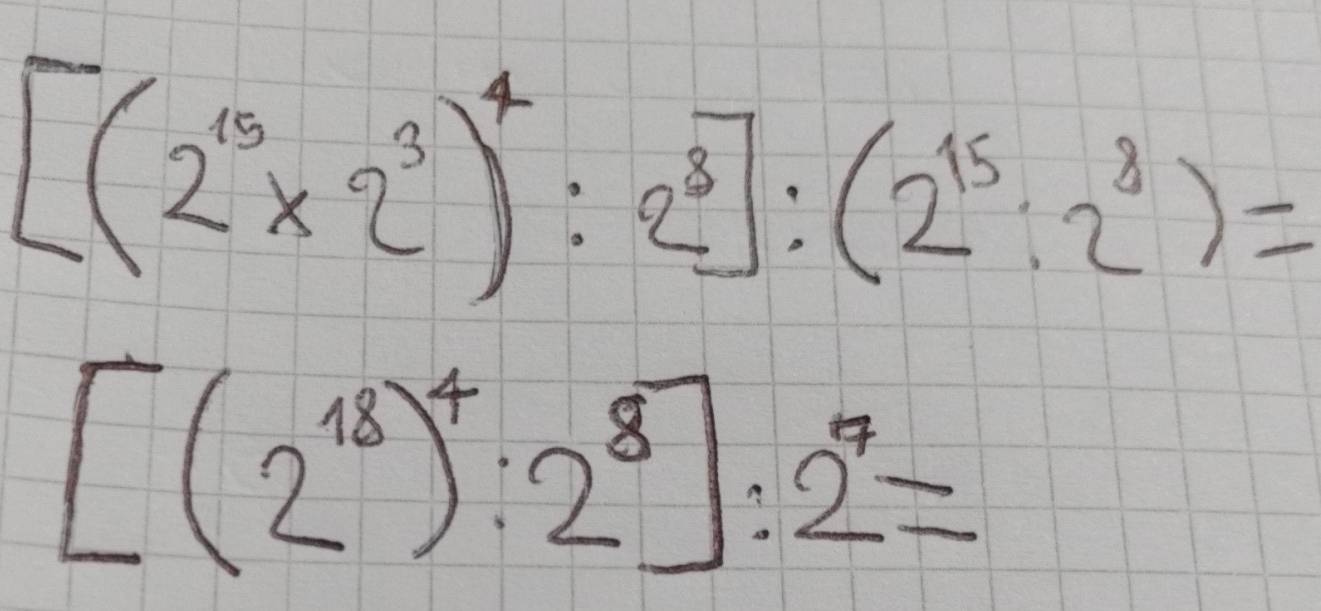 [(2¹⁵ × 2³)⁴ : 2⁸] : (2¹⁵ : 2⁸) =
[(2¹⁸)⁴ : 2⁸] : 2⁷ =